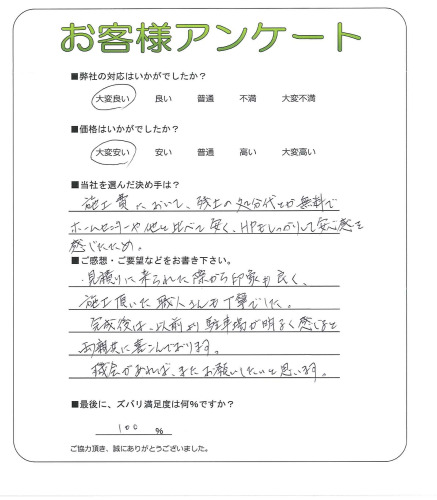 お客様アンケート
■弊社の対応はいかがでしたか?
大変良い 良い 普通 不満 大変不満
■価格はいかがでしたか?
大変安い 安い 普通 高い 大変高い
■当社を選んだ決め手は?
施工費において、残土の処分代とか無料で
ホームセンターや他と比べて安く、HPもしっかりして安心感を
感じたため。
■ご感想・ご要望などをお書き下さい。
・見積りに来られた際から印象も良く、
施工頂いた職人さんも丁寧でした。
完成後は、以前より駐車場が明るく感じると
両親共に喜んでおります。
機会があれば、またお願いしたいと思います。
■最後に、ズバリ満足度は何%ですか?
100 %
ご協力頂き、誠にありがとうございました。